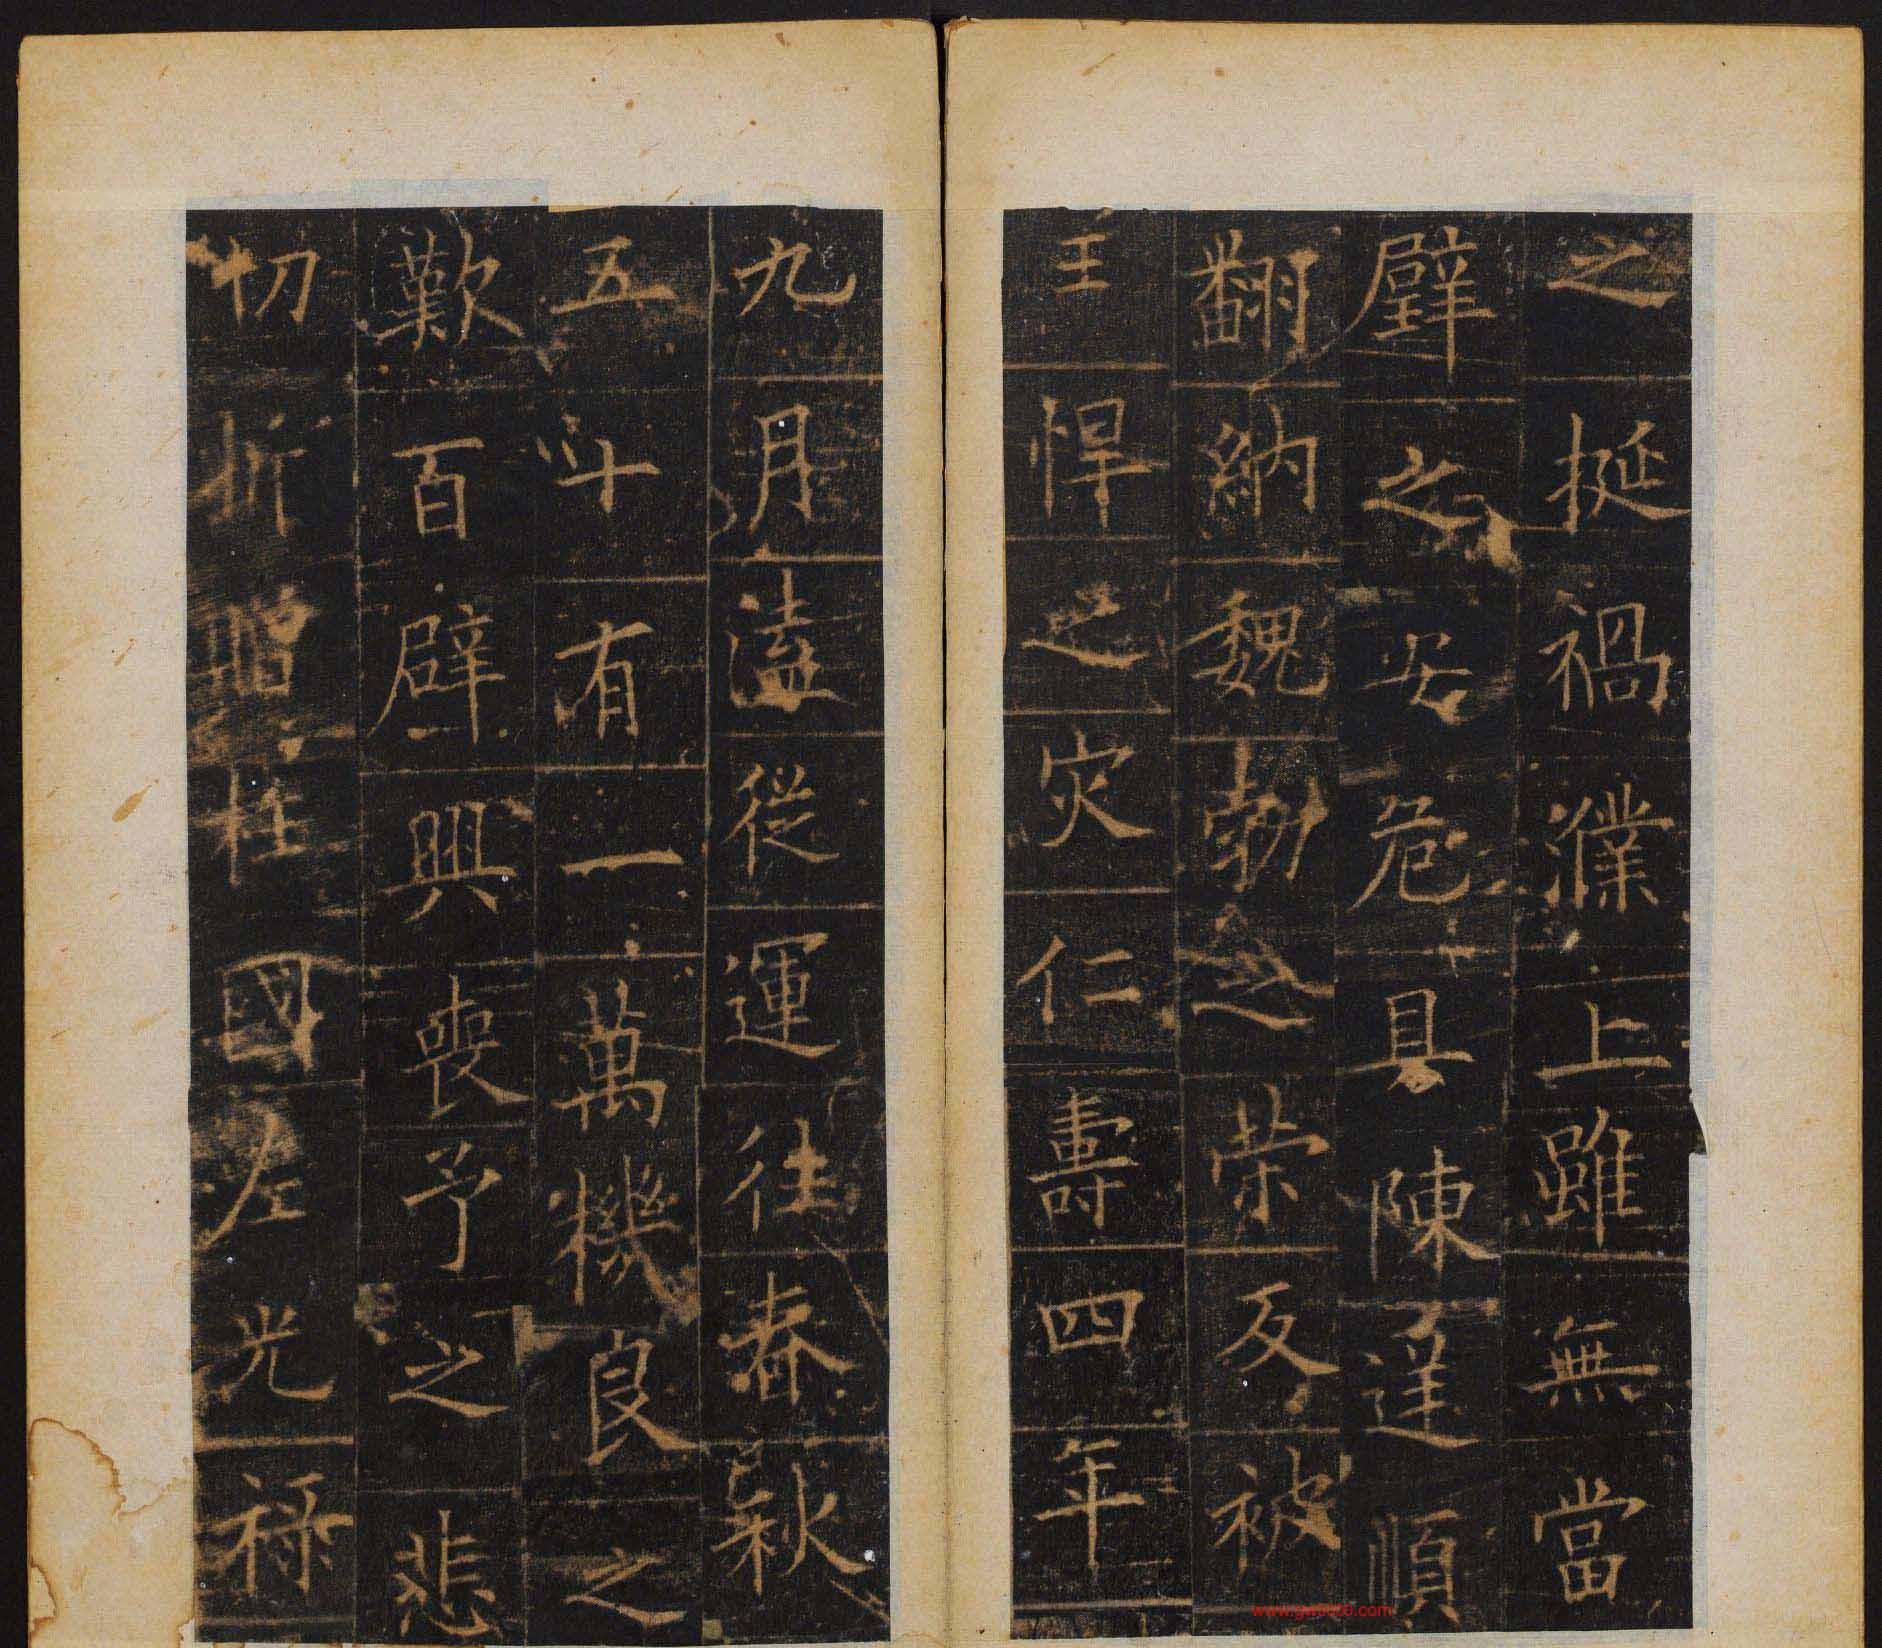 之挺禍濮上雖無當
璧之安危具陳逆順
翻納魏勃之榮反被
王悍之灾仁壽四年
九月溘從運往春秋
五十有一萬機良之
歎百辟興喪予之悲
切折贈柱國左光祿